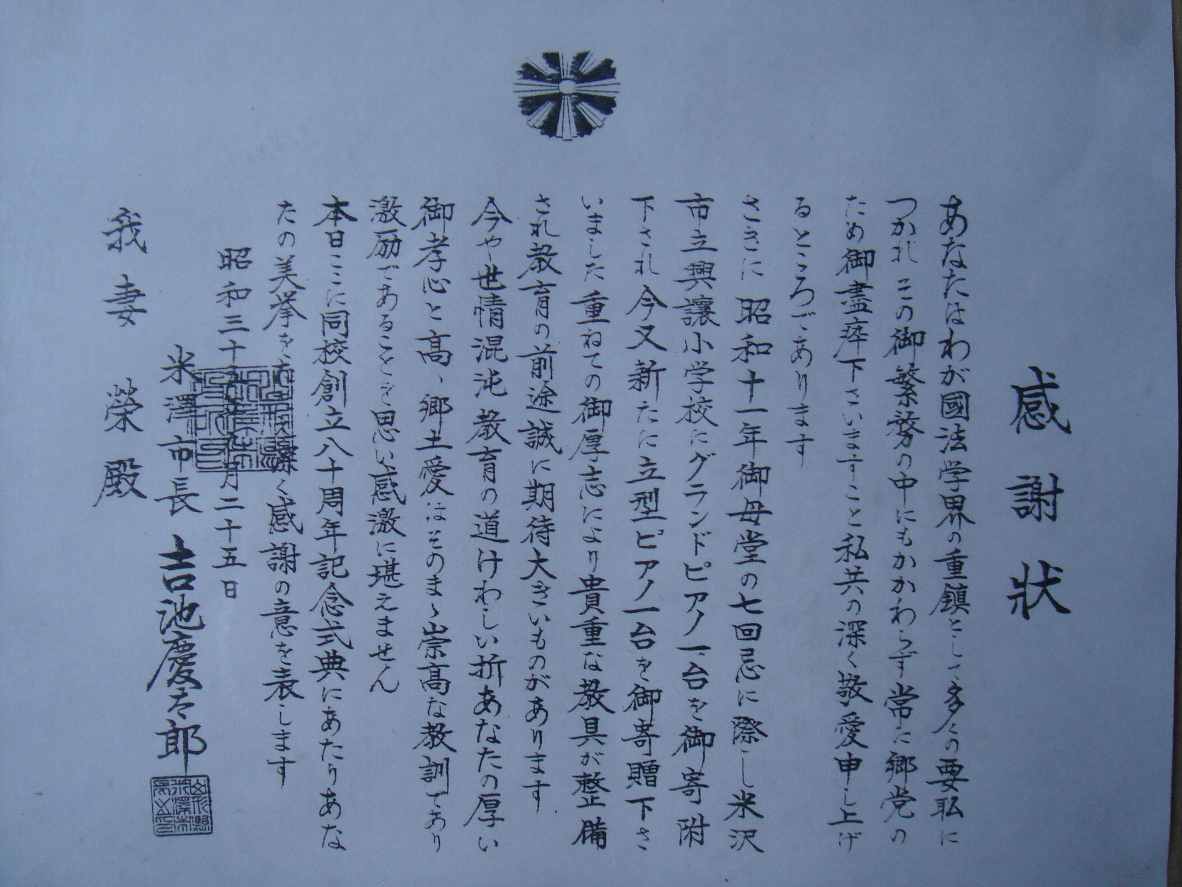 感謝状
あなたはわが國法学界の重鎮として多々の要職に
つかれ この御繁務の中にもかかわらず常に郷党の
ため御盡瘁下さいますこと私共の深く敬愛申し上げ
るところであります
さきに 昭和十一年御母堂の七回忌に際し米沢
市立興讓小学校にグランドピアノ一台を御寄附
下され 今又新たに立型ピアノ一台を御寄贈下さ
いました重ねての御厚志により貴重な教具が整備
され教育の前途誠に期待大きいものがあります
今や世情混沌教育の道けわしい折あなたの厚い
御孝心と高い郷土愛はそのまゝ崇高な教訓であり
激励であることを思い感激に堪えません
本日ここに同校創立八十周年記念式典にあたりあな
たの美挙を 深く感謝の意を表します
昭和三十 月二十五日
米澤市長 吉池慶太郎
我妻 榮殿